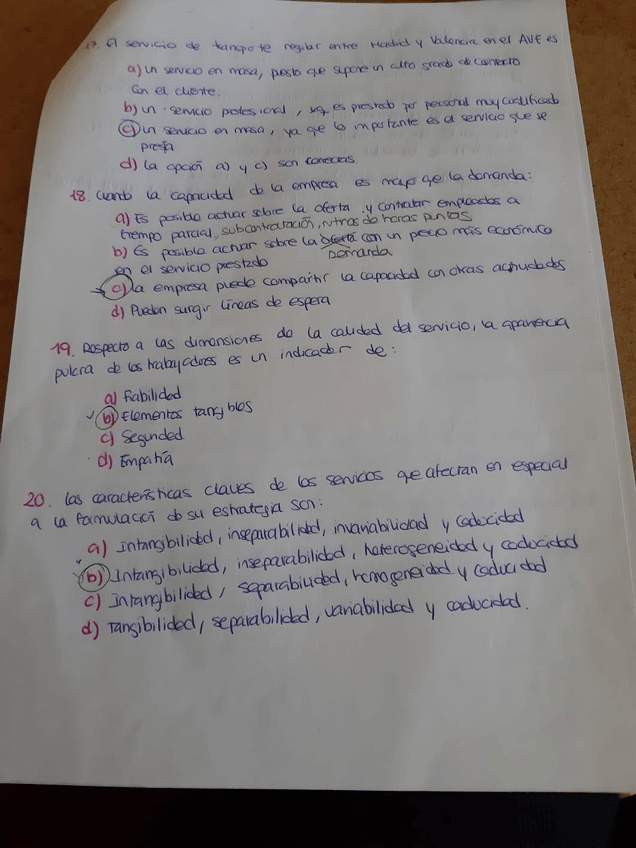 17. El servicio de transporte regular entre Madrid y Valencia en el AVE es
a) un servicio en masa, puesto que supone un alto grado de contacto
con el cliente.
b) un servicio profesional, es prestado por personal muy cualificado
c) un servicio en masa, ya que lo importante es el servicio que se
presta
d) la opción a) y c) son correctas.
18. Cuando la capacidad de la empresa es mayor que la demanda:
a) Es posible actuar sobre la oferta y contratar empleados a
tiempo parcial, subcontratación, rutinas de horas puntas
b) Es posible actuar sobre la oferta con un precio más económico
Demanda
en el servicio prestado
c) la empresa puede compartir la capacidad con otras actividades
d) Pueden surgir líneas de espera
19. Respecto a las dimensiones de la calidad del servicio, la apariencia
pulcra de los trabajadores es un indicador de:
a) Fiabilidad
b) Elementos tangibles
c) Seguridad
d) Empatía
20. Las características claves de los servicios que afectan en especial
a la formulación de su estrategia son:
a) Intangibilidad, inseparabilidad, invariabilidad y caducidad
b) Intangibilidad, inseparabilidad, heterogeneidad y caducidad
c) Intangibilidad, separabilidad, homogeneidad y caducidad
d) Tangibilidad, separabilidad, variabilidad y caducidad.